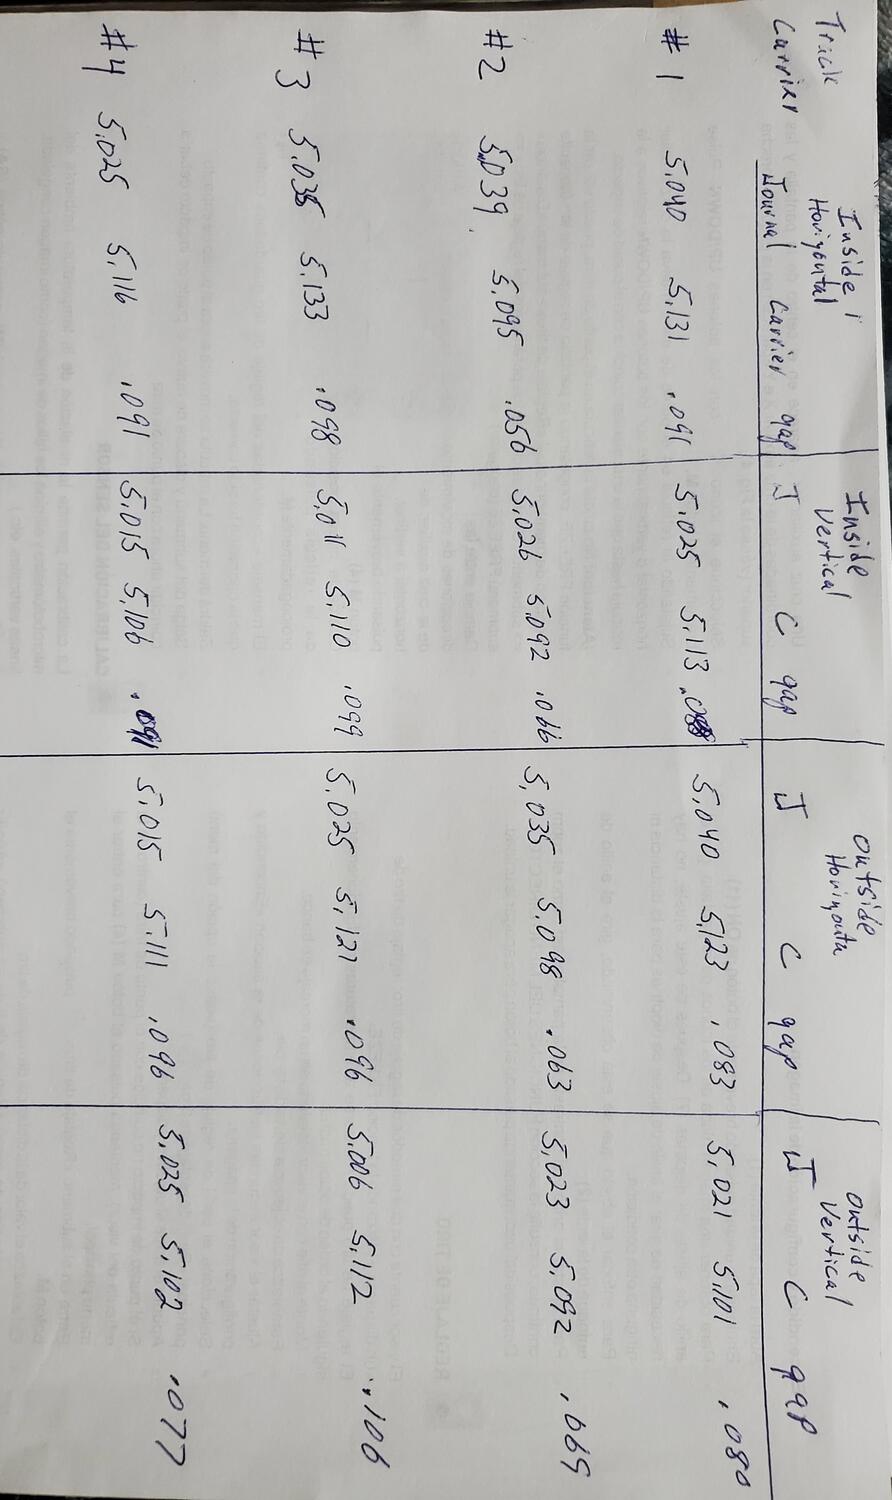 Track Carrier Inside Horizontal Inside Vertical Outside Horizonta Outside Vertical
Journal Carrier gap J C gap J C gap J C gap
#1 5.040 5.131 .091 5.025 5.113 .088 5.040 5.123 .083 5.021 5.101 .080
#2 5.039 5.095 .056 5.026 5.092 .066 5.035 5.098 .063 5.023 5.092 .069
#3 5.035 5.133 .098 5.011 5.110 .099 5.025 5.121 .096 5.006 5.112 .106
#4 5.025 5.116 .091 5.015 5.106 .091 5.015 5.111 .096 5.025 5.102 .077